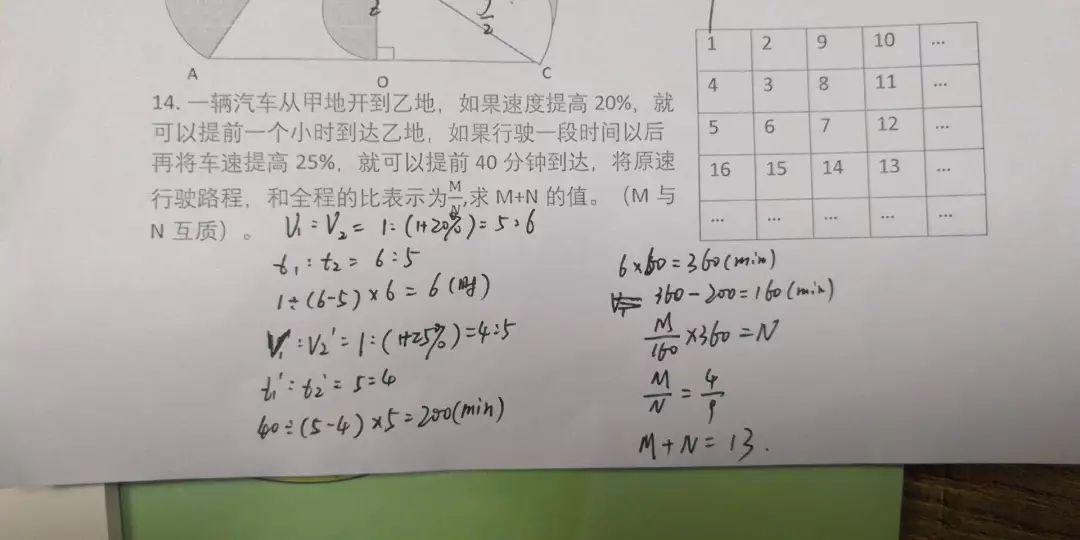 A
O
C
14. 一辆汽车从甲地开到乙地，如果速度提高 20%，就
可以提前一个小时到达乙地，如果行驶一段时间以后
再将车速提高 25%，就可以提前 40 分钟到达，将原速
行驶路程，和全程的比表示为M/N,求 M+N 的值。（M 与
N 互质）。
V₁:V₂ = 1:(1+20%)=5:6
t₁:t₂ = 6:5
1÷(6-5)×6=6(时)
V₁':V₂'=1:(1+25%)=4:5
t₁':t₂'=5:4
40÷(5-4)×5=200(min)
6×60=360(min)
360-200=160(min)
M/160×360=N
M/N=4/9
M+N=13.
1 2 9 10 ...
4 3 8 11 ...
5 6 7 12 ...
16 15 14 13 ...
... ... ... ... ...